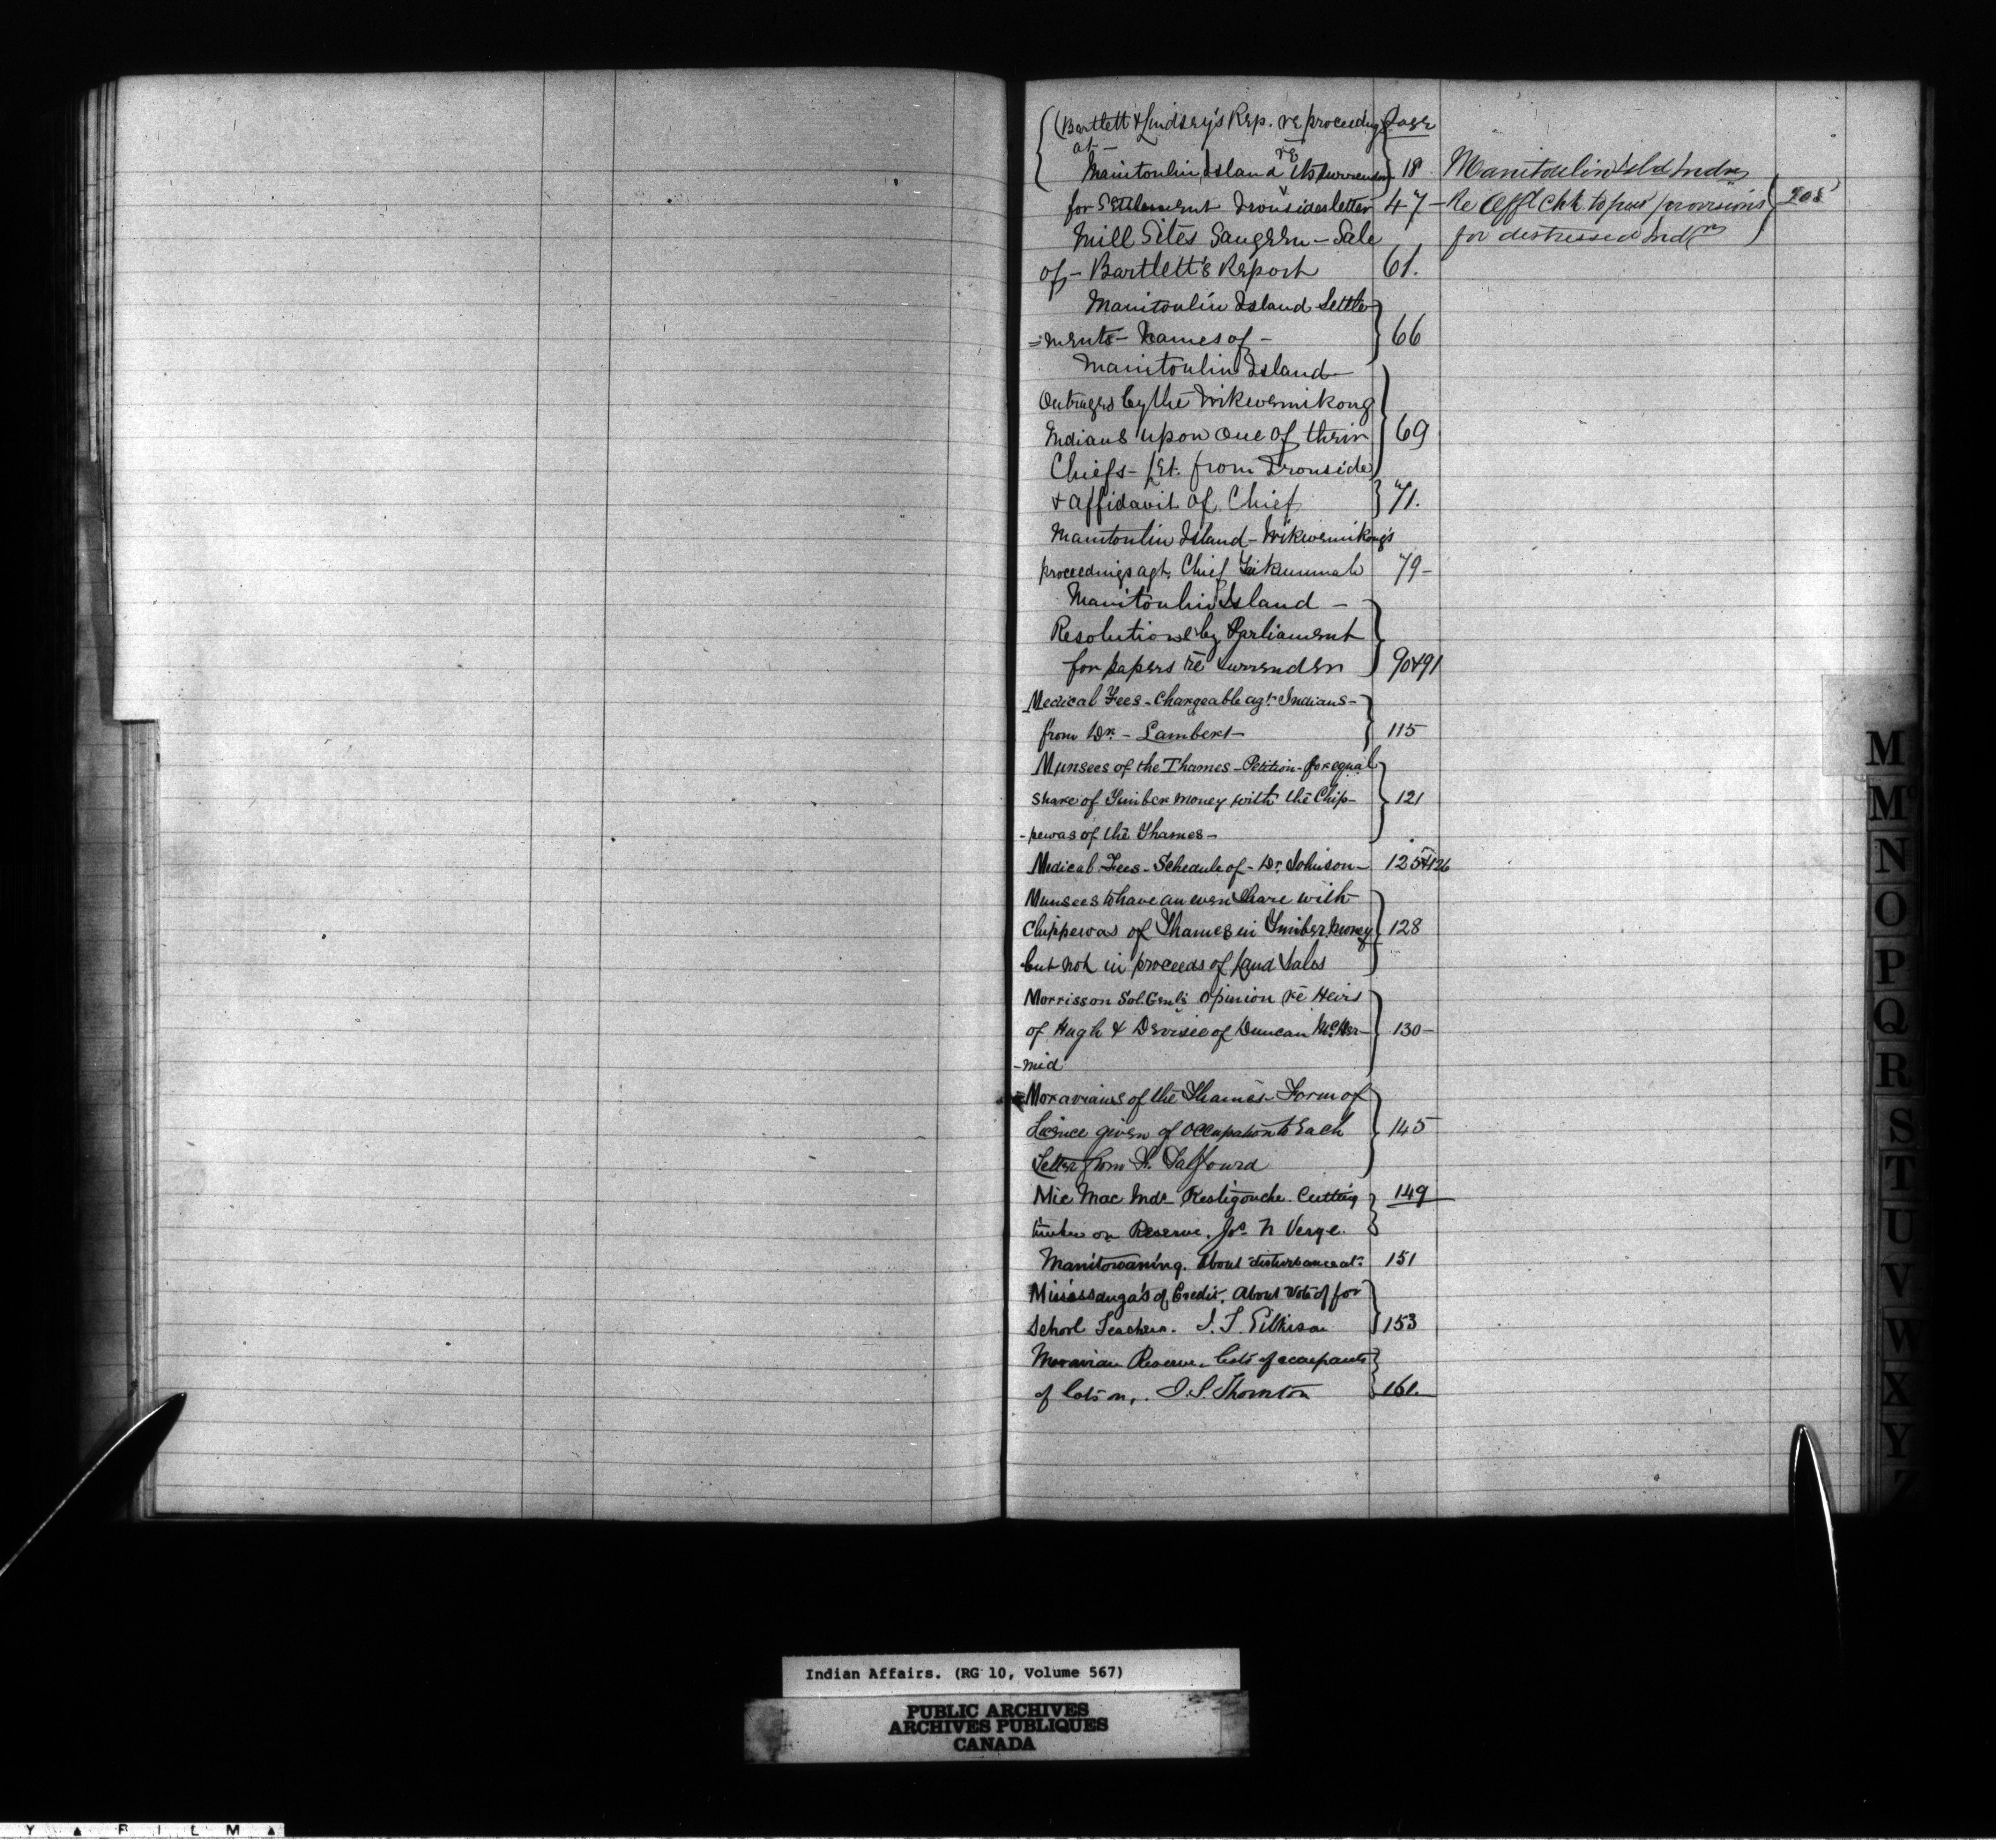 (Bartlett & Lindsey's Rep. re proceeding Page
at -
Manitoulin Island re its surrender 18
for settlement Ironsides letter 47 -
Mill Sites Saugeen - Sale
of - Bartlett's Report 61.
Manitoulin Island Settle
= ments - Names of - 66
Manitoulin Island -
Outrages by the Wikwemikong
Indians upon one of their 69
Chiefs - Let. from Ironside
& affidavit of Chief 71.
Manitoulin Island - Wikwemikong's
proceedings agt. Chief 79 -
Manitoulin Island -
Resolutions by Parliament
for papers re surrender 90&91
Medical Fees - Chargeable agt. Indians -
from Dr. - Lambert - 115
Munsees of the Thames - Petition - for equal
share of Timber money with the Chip- 121
-pewas of the Thames -
Medical Fees - Schedule of - Dr. Johnson - 125&126
Munsees to have an even share with
Chippewas of Thames in Timber money 128
but not in proceeds of Land Sales
Morrisson Sol. Genl's opinion re Heirs
of Hugh & Devisee of Duncan McDer- 130 -
-mid
Moravians of the Thames - Form of
Licence given of occupation to each 145
Letter from F. Talfourd
Mic Mac Inds - Restigouche. Cutting 149
timber on Reserve. Jos. N Verge.
Manitowaning. About disturbance at. 151
Mississauga's of Credit. About vote of for
School Teachers. J. T. Gilkison 153
Moravian Reserve. Lists of occupants
of lots on, . J. S. Thornton 161.
Manitoulin Isld Indns
Re Appl Chk to pur provisions 208
for distressed Indns
M
Mc
N
O
P
Q
R
S
T
U
V
W
X
Y
Z
Indian Affairs. (RG 10, Volume 567)
PUBLIC ARCHIVES
ARCHIVES PUBLIQUES
CANADA
Y ▲ F I L M ▲